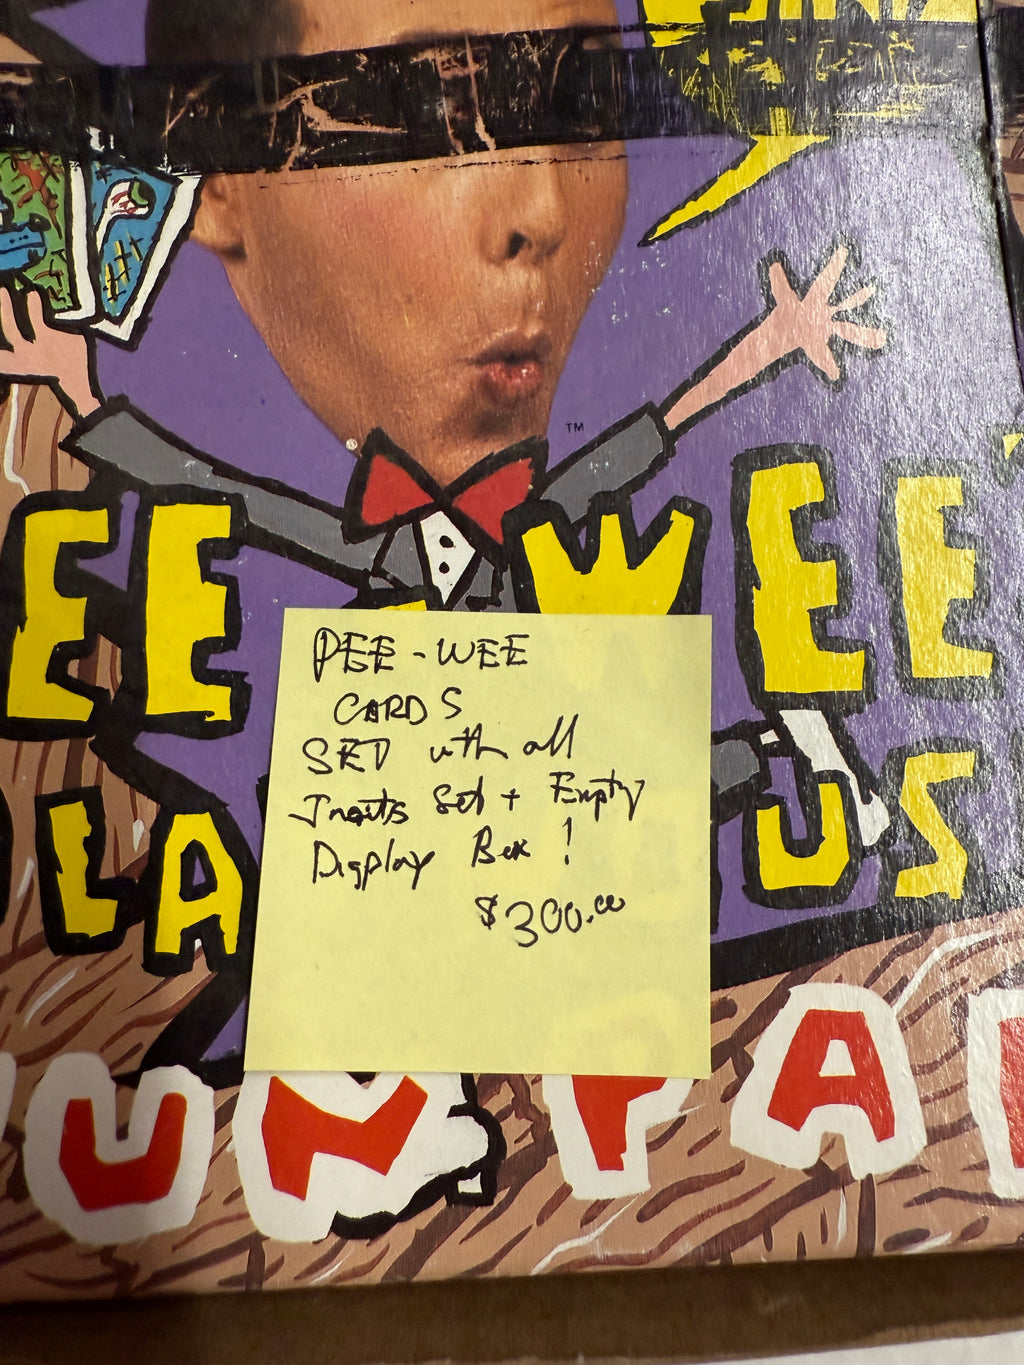 TM
EE-WEE
PEE-WEE
CARDS
SET with all
Inserts Set + Empty
Display Box!
$300.00
LA US
UN PA